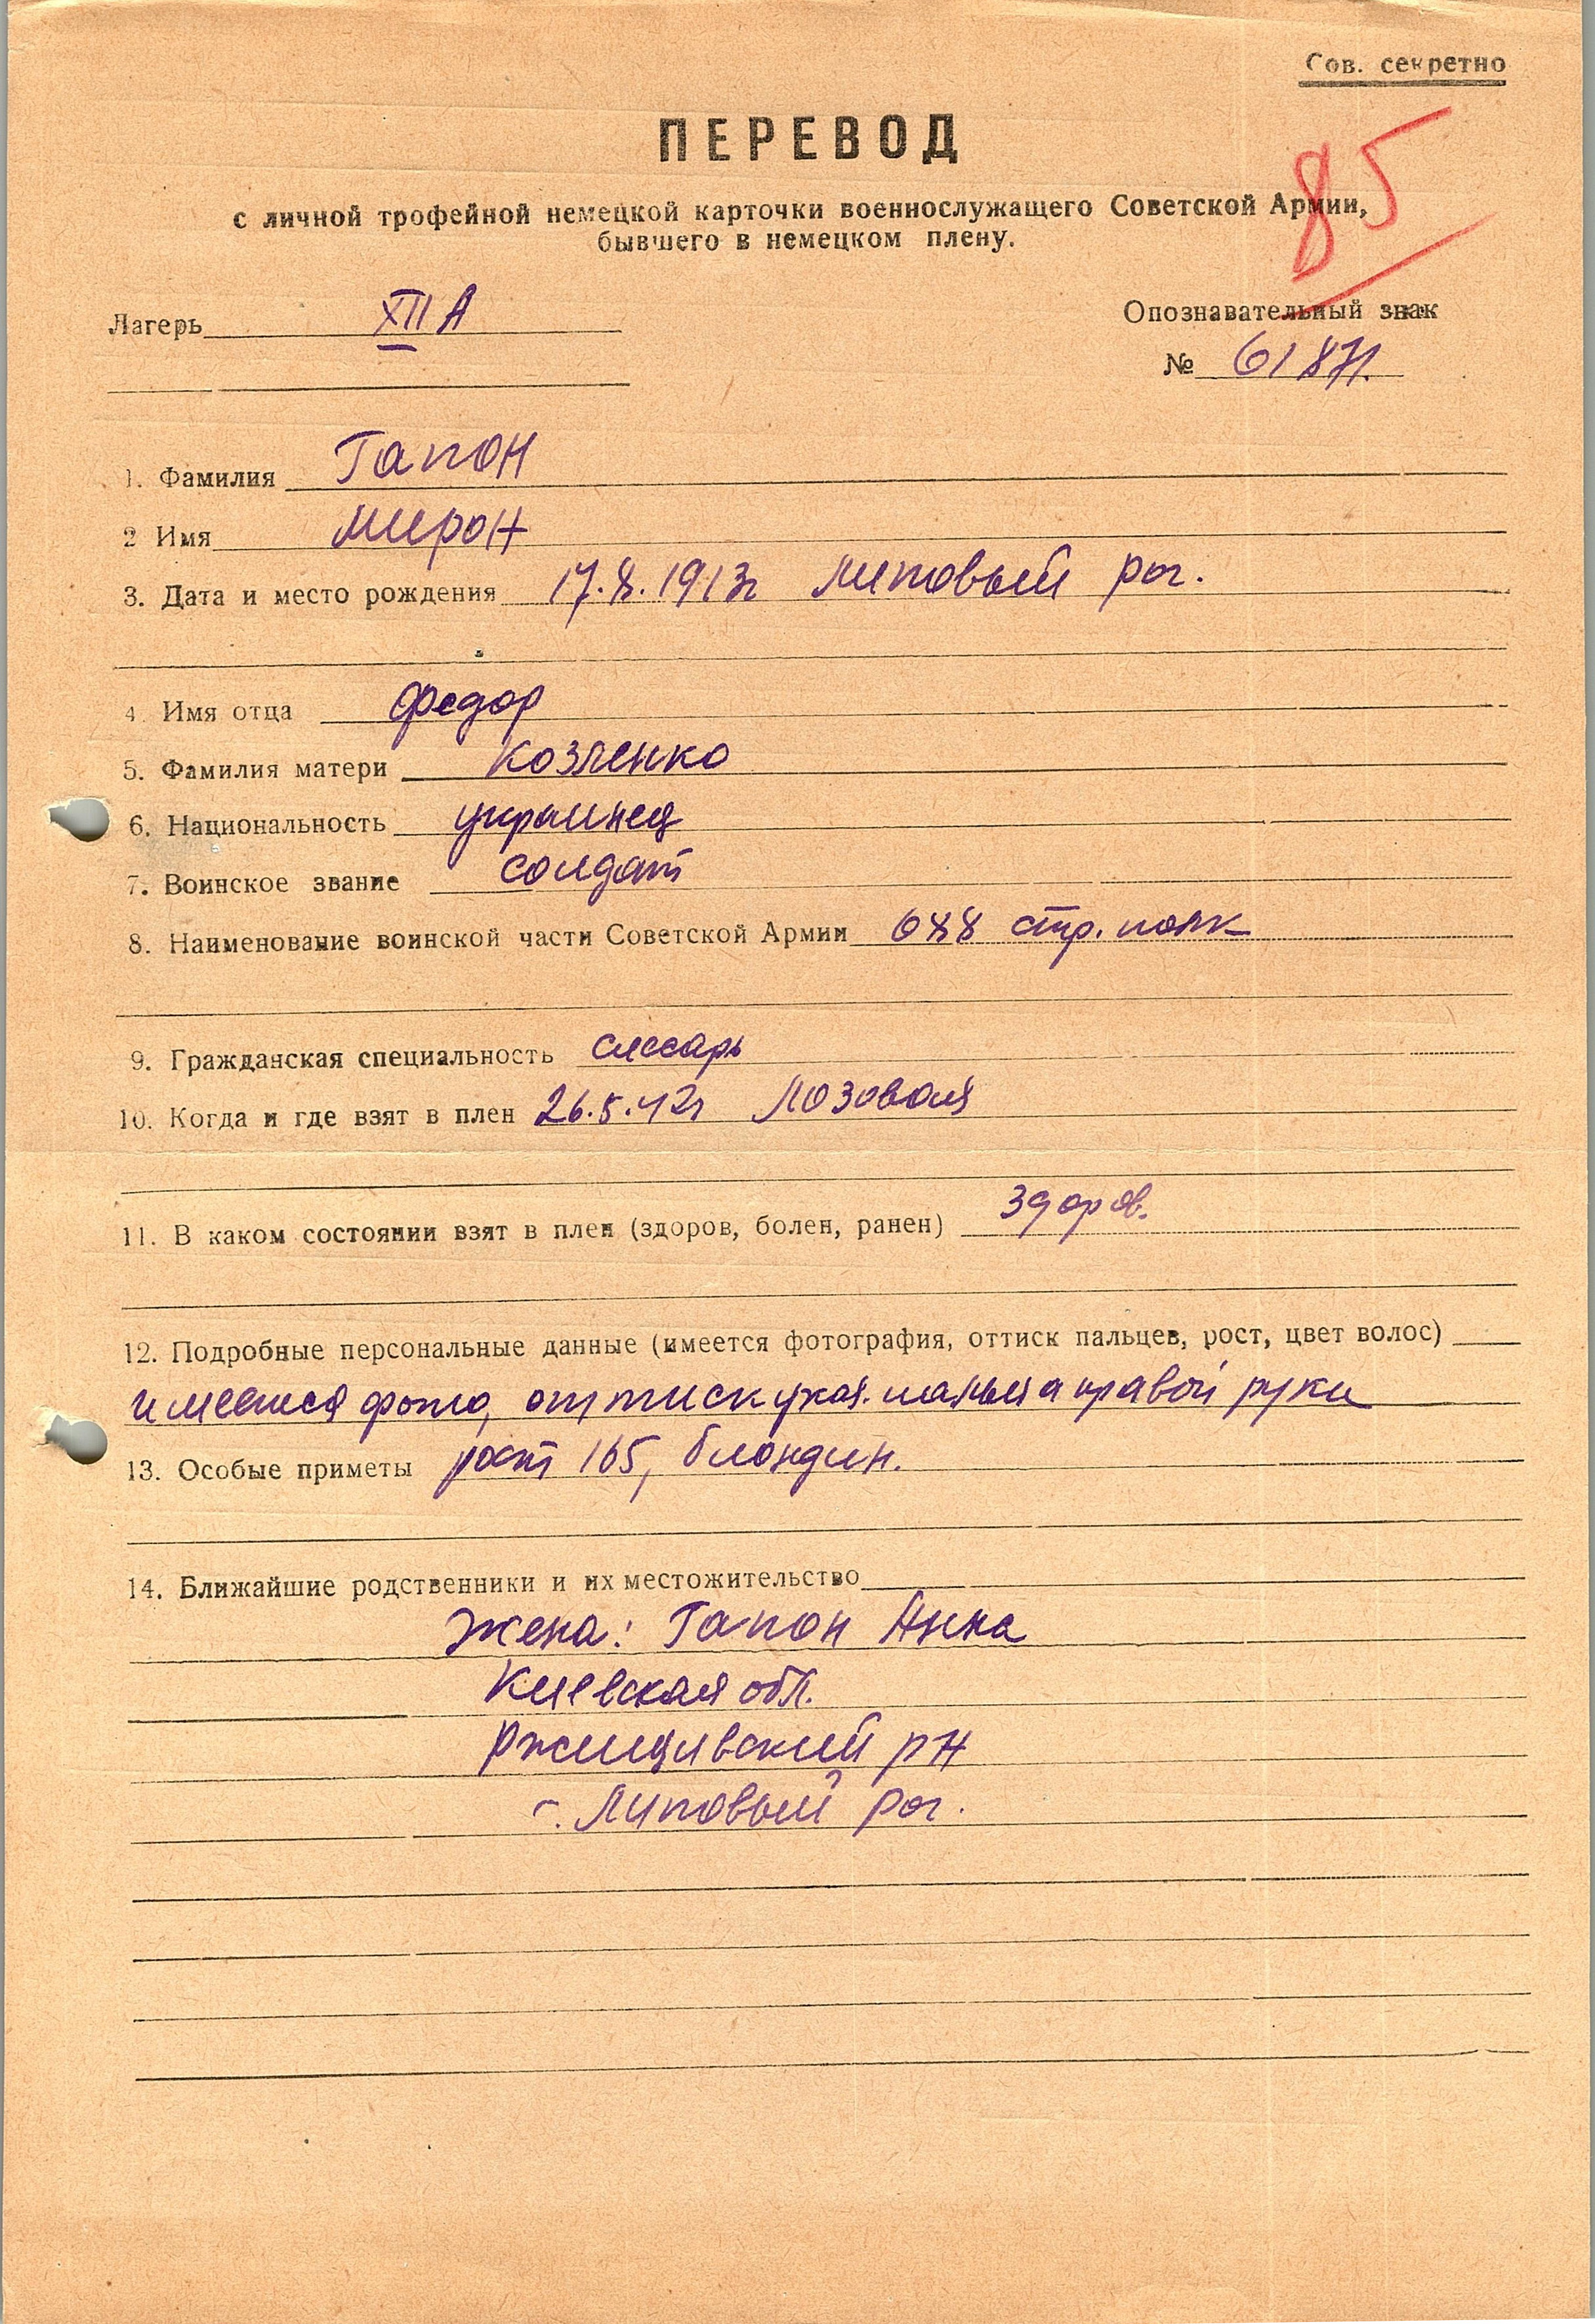 Сов. секретно
85
ПЕРЕВОД
с личной трофейной немецкой карточки военнослужащего Советской Армии,
бывшего в немецком плену.
Лагерь XII А
Опознавательный знак
№ 61871.
1. Фамилия Гапон
2 Имя Мирон
3. Дата и место рождения 17.8.1913г Липовый рог.
4. Имя отца Федор
5. Фамилия матери Козленко
6. Национальность украинец
7. Воинское звание солдат
8. Наименование воинской части Советской Армии 688 стр. полк
9. Гражданская специальность слесарь
10. Когда и где взят в плен 26.5.42г Лозовая
11. В каком состоянии взят в плен (здоров, болен, ранен) здоров.
12. Подробные персональные данные (имеется фотография, оттиск пальцев, рост, цвет волос)
имеется фото, оттиск указ. пальца правой руки
13. Особые приметы рост 165, блондин.
14. Ближайшие родственники и их местожительство
Жена: Гапон Анна
Киевская обл.
Ржищивский рн
с. Липовый рог.